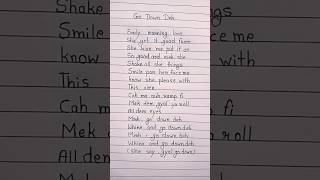 Go Down Deh
Shake
Smile
know
with
This
Cah me
Mek
All dem
Early morning love
She get it good form
She have me put it on
So good and nah she
Shake all she things
Smile pon her face me
know she please with
This ----
Cah me nuh ramp fi
Mek dem gyal ya roll
All dem eyes
Mek, go down deh
Whine and go down deh
Mek, go down deh
Whine and go down deh
(She say, gyal go down)
fi
a roll